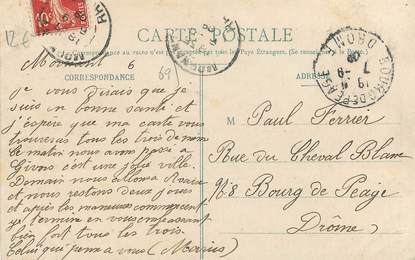 12€
10
CARTE POSTALE
La Correspondance au recto n'est pas acceptée par tous les Pays Étrangers.
CORRESPONDANCE
ADRESSE
MORNANT
BOURG-DE-PEAGE
DROME
7 -9
69
Mornant 6
Je vous Dirais que je
suis en bonne santé et
j'espère que ma carte vous
trouveras tous les trois de même
Ce matin nous avon passé a
Givors c'est une jolie ville
Demain nous allons a
et nous restons deux jours
et après les maneuvres commencent
je termine en vous embrassant
bien fort tous les trois.
Celui qui pense a vous (Marius)
M Paul Ferrier
Rue du Cheval Blanc
N°8 Bourg de Péage
Drôme